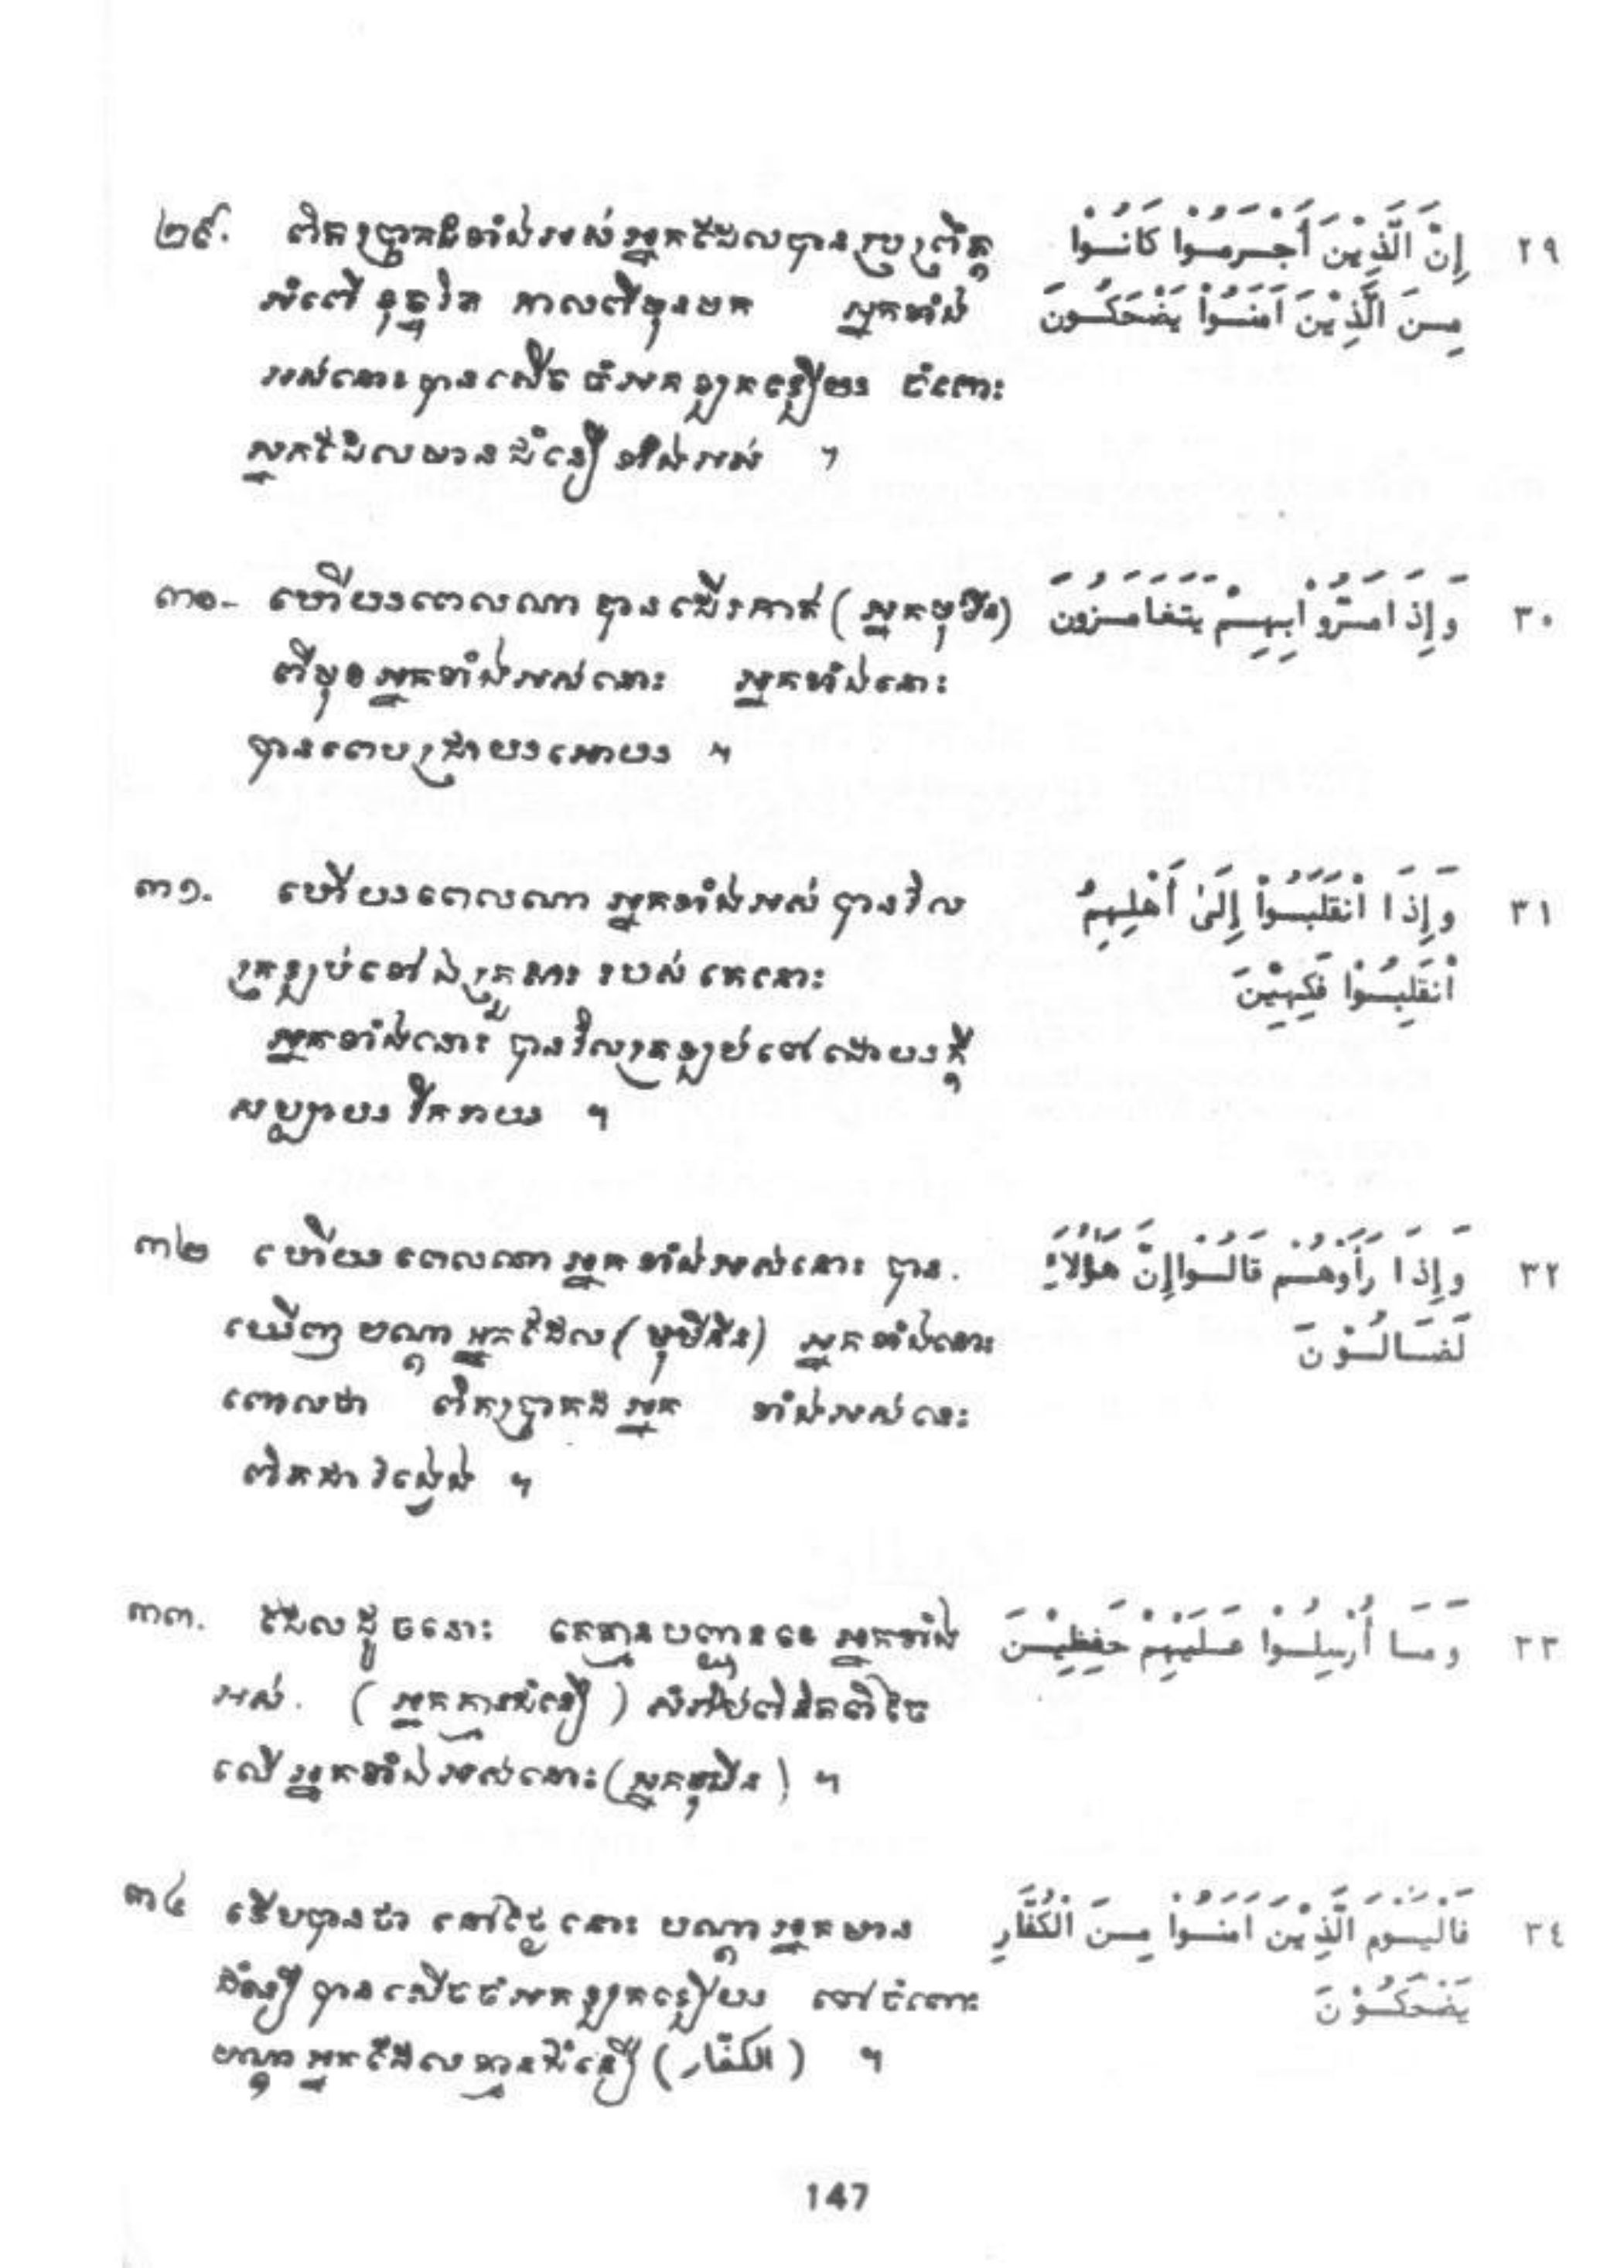 ២៩. ពិតប្រាកដទាំងអស់អ្នកដែលបានប្រព្រឹត្ត
អំពើទុច្ចរិត កាលពីមុនមក អ្នកទាំង
អស់នោះបានសើចចំអកឡកឡឺយ ចំពោះ
អ្នកដែលមានជំនឿទាំងអស់ ។
إِنَّ الَّذِيْنَ أَجْرَمُوْا كَانُوْا ٢٩
مِنَ الَّذِيْنَ آمَنُوْا يَضْحَكُوْنَ
៣០- ហើយពេលណា បានដើរកាត់ (អ្នកមុមីន)
ពីមុខអ្នកទាំងអស់នោះ អ្នកទាំងនោះ
បានពេបជ្រាយអោយ ។
وَإِذَا مَرُّوْا بِهِمْ يَتَغَامَزُوْنَ ٣٠
៣១. ហើយពេលណា អ្នកទាំងអស់ បានវិល
ត្រឡប់ទៅឯគ្រួសារ របស់គេនោះ
អ្នកទាំងនោះ បានវិលត្រឡប់ទៅដោយក្តី
សប្បាយ រីករាយ ។
وَإِذَا انْقَلَبُوْا إِلَىٰ أَهْلِهِمُ ٣١
انْقَلَبُوْا فَكِهِيْنَ
៣២ ហើយពេលណា អ្នកទាំងអស់នោះ បាន
ឃើញបណ្តាអ្នកដែល (មុមីនីន) អ្នកទាំងនោះ
ពោលថា ពិតប្រាកដអ្នក ទាំងអស់នេះ
ពិតជាវង្វេង ។
وَإِذَا رَأَوْهُمْ قَالُوْا إِنَّ هَؤُلَاءِ ٣٢
لَضَالُّوْنَ
៣៣. ដែលដូចនោះ គេគ្មានបញ្ជូនទេ អ្នកទាំង
អស់. (អ្នកគ្មានជំនឿ) សំរាប់ពិនិត្យពិច័យ
លើអ្នកទាំងអស់នោះ (អ្នកមុមីន) ។
وَمَا أُرْسِلُوْا عَلَيْهِمْ حَفِظِيْنَ ٣٣
៣៤ ទើបបានជា នៅថ្ងៃនោះ បណ្តាអ្នកមាន
ជំនឿបានសើចចំអកឡកឡឺយ ទៅចំពោះ
បណ្តាអ្នកដែលគ្មានជំនឿ (الكفّار) ។
فَالْيَوْمَ الَّذِيْنَ آمَنُوْا مِنَ الْكُفَّارِ ٣٤
يَضْحَكُوْنَ
147